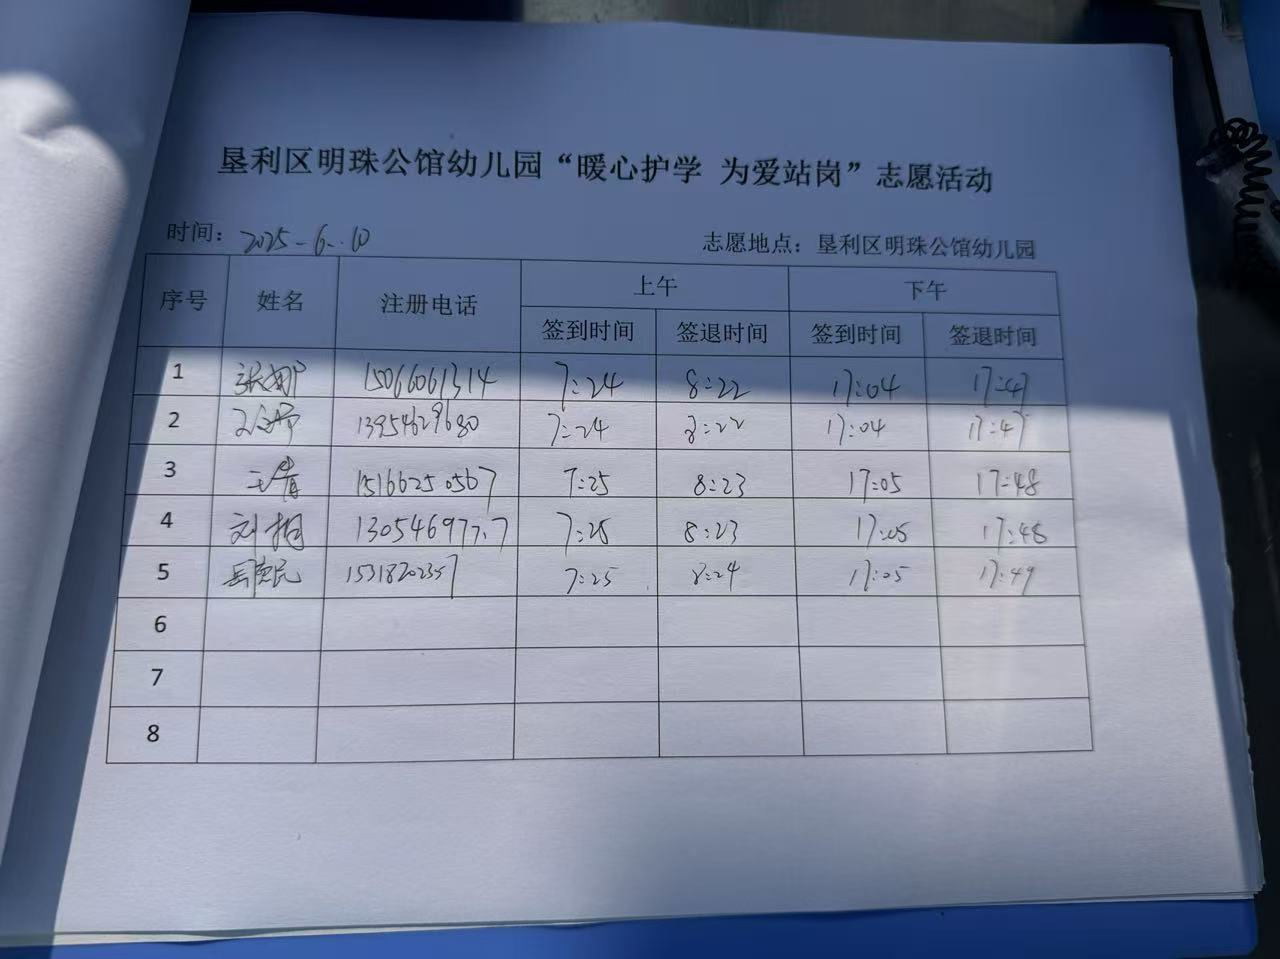 垦利区明珠公馆幼儿园“暖心护学 为爱站岗”志愿活动
时间：2025-6.10 志愿地点：垦利区明珠公馆幼儿园
序号 姓名 注册电话 上午 下午
签到时间 签退时间 签到时间 签退时间
1 15066061314 7:24 8:22 17:04 17:47
2 13954629680 7:24 8:22 17:04 17:47
3 王青 15166250567 7:25 8:23 17:05 17:48
4 刘 7:25 8:23 17:05 17:48
5 民 15318202357 7:25 8:24 17:05 17:49
6
7
8